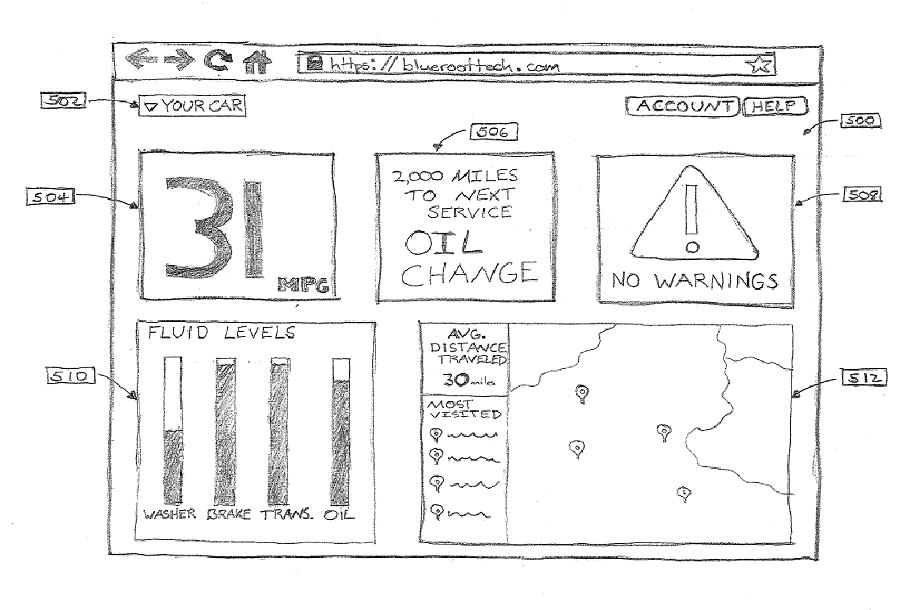 https://blueroottech.com
502
YOUR CAR
ACCOUNT
HELP
500
506
504
31
MPG
2,000 MILES
TO NEXT
SERVICE
OIL
CHANGE
!
NO WARNINGS
508
510
FLUID LEVELS
WASHER BRAKE TRANS. OIL
AVG.
DISTANCE
TRAVELED
30 miles
MOST
VISITED
512